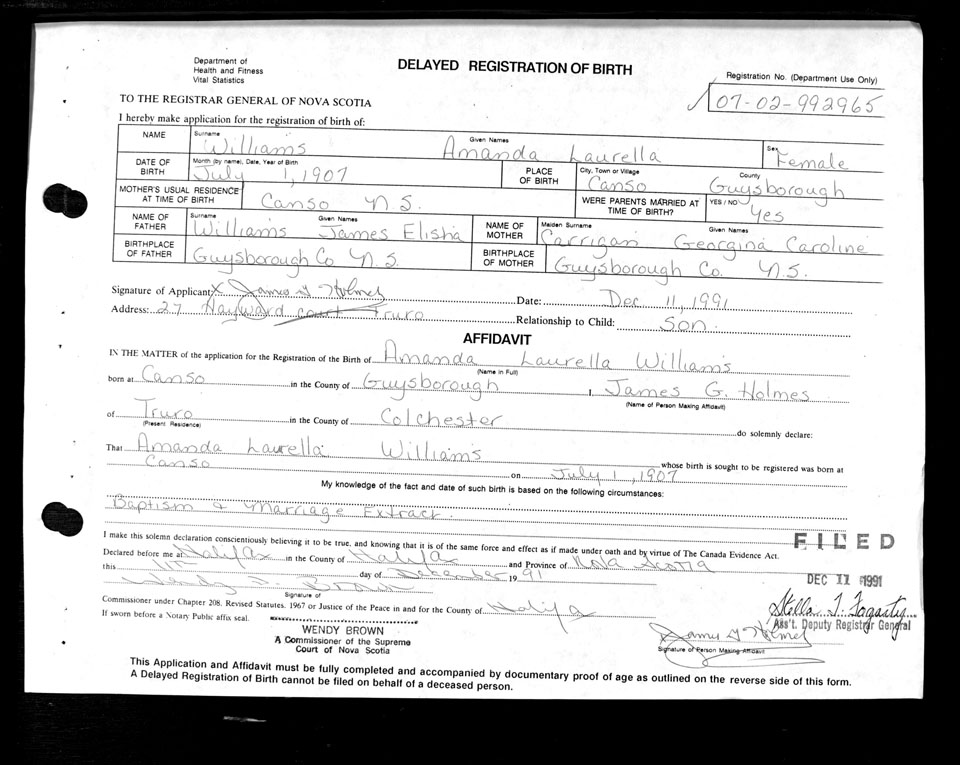 Department of
Health and Fitness
Vital Statistics
DELAYED REGISTRATION OF BIRTH
Registration No. (Department Use Only)
07-02-992965
TO THE REGISTRAR GENERAL OF NOVA SCOTIA
I hereby make application for the registration of birth of:
NAME Surname Williams Given Names Amanda Laurella Sex Female
DATE OF BIRTH Month (by name), Date, Year of Birth July 1, 1907 PLACE OF BIRTH City, Town or Village Canso County Guysborough
MOTHER'S USUAL RESIDENCE AT TIME OF BIRTH Canso N.S. WERE PARENTS MARRIED AT TIME OF BIRTH? YES / NO Yes
NAME OF FATHER Surname Williams Given Names James Elisha NAME OF MOTHER Maiden Surname Carrigan Given Names Georgina Caroline
BIRTHPLACE OF FATHER Guysborough Co N.S. BIRTHPLACE OF MOTHER Guysborough Co. N.S.
Signature of Applicant X James G Holmes Date: Dec 11, 1991
Address: 27 Hayward Court Truro Relationship to Child: Son.
AFFIDAVIT
IN THE MATTER of the application for the Registration of the Birth of Amanda Laurella Williams
(Name in Full)
born at Canso in the County of Guysborough I, James G. Holmes
(Name of Person Making Affidavit)
of Truro in the County of Colchester do solemnly declare:
(Present Residence)
That Amanda Laurella Williams whose birth is sought to be registered was born at
Canso on July 1, 1907
My knowledge of the fact and date of such birth is based on the following circumstances:
Baptism & Marriage Extract.
I make this solemn declaration conscientiously believing it to be true, and knowing that it is of the same force and effect as if made under oath and by virtue of The Canada Evidence Act.
FILED
Declared before me at Halifax in the County of Halifax and Province of Nova Scotia
this 11th day of December 19 91
DEC 11 1991
Wendy J. Brown
Signature of
Commissioner under Chapter 208. Revised Statutes. 1967 or Justice of the Peace in and for the County of Halifax
Stella T. Fogarty
Ass't. Deputy Registrar General
If sworn before a Notary Public affix seal.
WENDY BROWN
A Commissioner of the Supreme
Court of Nova Scotia
James G Holmes
Signature of Person Making Affidavit
This Application and Affidavit must be fully completed and accompanied by documentary proof of age as outlined on the reverse side of this form.
A Delayed Registration of Birth cannot be filed on behalf of a deceased person.